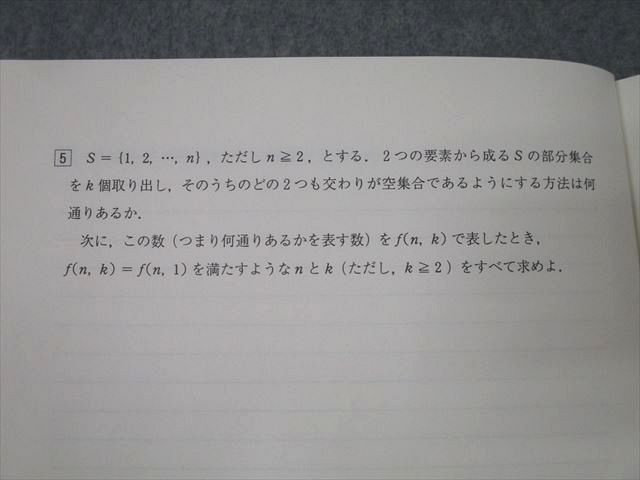 5 S = {1, 2, …, n}，ただし n ≧ 2，とする．２つの要素から成る S の部分集合
を k 個取り出し，そのうちのどの２つも交わりが空集合であるようにする方法は何
通りあるか．
次に，この数（つまり何通りあるかを表す数）を f(n, k) で表したとき，
f(n, k) = f(n, 1) を満たすような n と k（ただし，k ≧ 2）をすべて求めよ．